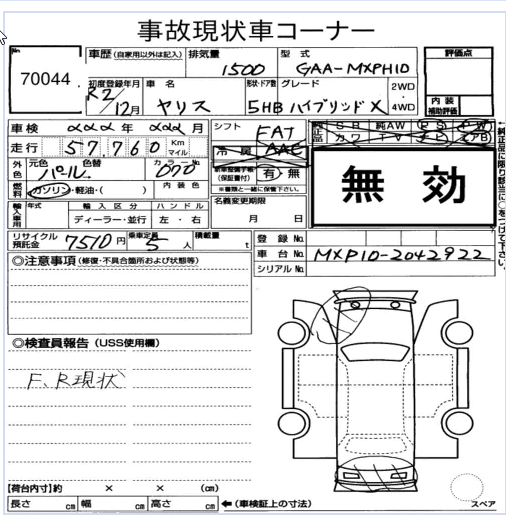 事故現状車コーナー
No
70044
車歴(自家用以外は記入) 排気量 1500 型式 GAA-MXPH10 評価点
初度登録年月 R2/12月 車名 ヤリス 形状・ドア数 5HB グレード ハイブリッドX 2WD・4WD 内装補助評価
車検 年 月 シフト FAT
走行 57760 Km マイル 冷房 AAC
外色 元色 パール 色替 カラーNo. 070 新車整備手帳(保証書付) 有・無
無効
燃料 ガソリン・軽油・( ) 内装色 ※書類と一緒に保管下さい。
輸入車用 年式 輸入区分 ハンドル 名義変更期限
ディーラー・並行 左・右 月 日
リサイクル預託金 7510円 乗車定員 5人 積載量 t 登録No.
車台No. MXP10-2042922
シリアルNo.
◎注意事項(修復・不具合箇所および状態等)
◎検査員報告(USS使用欄)
F、R現状
【荷台内寸】約 × × (cm)
長さ cm 幅 cm 高さ cm ←(車検証上の寸法)
スペア